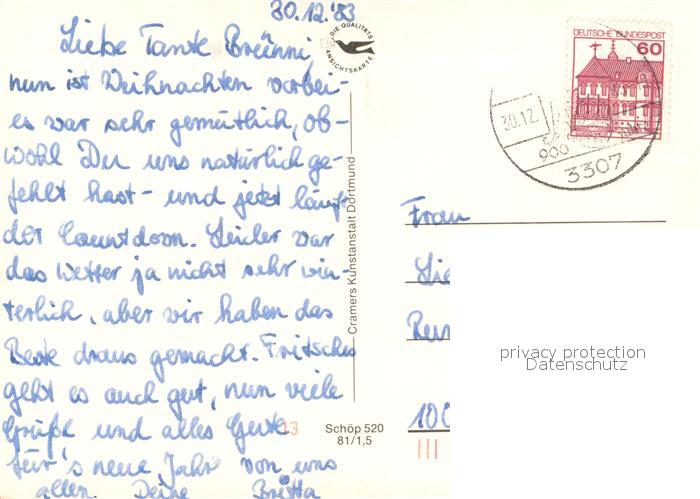 30.12.'83
Liebe Tante Brünni,
nun ist Weihnachten vorbei -
es war sehr gemütlich, ob-
wohl Du uns natürlich ge-
fehlt hast - und jetzt läuft
der Countdown. Leider war
das Wetter ja nicht sehr win-
terlich, aber wir haben das
Beste draus gemacht. Fritsches
geht es auch gut, nun viele
Grüße und alles Gute
für's neue Jahr von uns
allen. Deine Britta
DIE QUALITÄTS
ANSICHTSKARTE
Cramers Kunstanstalt Dortmund
Schöp 520
81/1,5
DEUTSCHE BUNDESPOST
60
30.12.
900
3307
Frau
privacy protection
Datenschutz